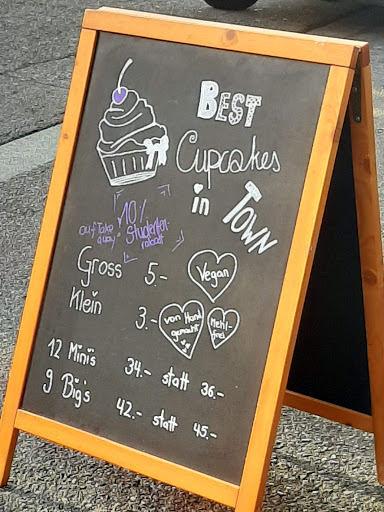 BEST
Cupcakes
in TOWN
10%
auf Take away Studenten-
rabatt
Gross 5.-
Vegan
Klein 3.-
von Hand
gemacht
Mehl-
frei
12 Minis 34.- statt 36.-
9 Big's 42.- statt 45.-